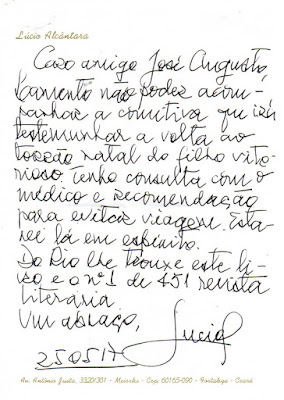 Lúcio Alcântara
Caro amigo José Augusto,
Lamento não poder acom-
panhar a comitiva que irá
testemunhar a volta ao
torrão natal do filho vito-
rioso. Tenho consulta com o
médico e recomendação
para evitar viagem. Esta-
rei lá em espírito.
Do Rio lhe trouxe este li-
vro e o nº 1 de 451 revista
literária.
Um abraço,
Lucio
250517
Av. Antônio Justa, 3320/301 - Meireles - Cep 60165-090 - Fortaleza - Ceará